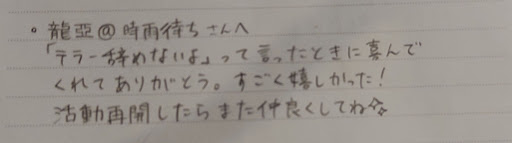 ◦ 龍亞@時雨待ちさんへ
「テラー辞めないよ」って言ったときに喜んで
くれてありがとう。すごく嬉しかった!
活動再開したらまた仲良くしてね☆